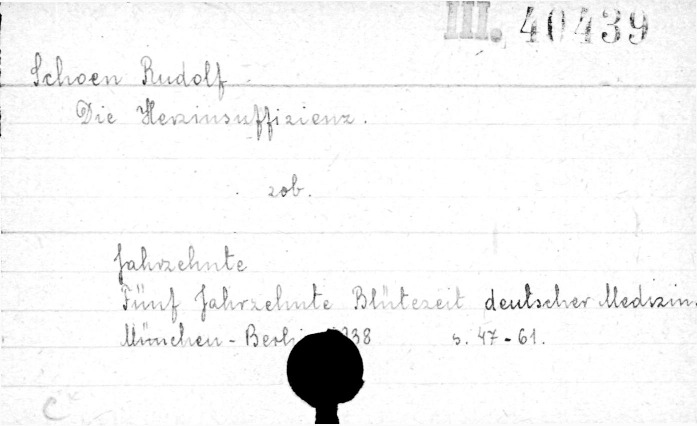 III. 40439
Schoen Rudolf
Die Herzinsuffizienz.
zob.
Jahrzehnte
Fünf Jahrzehnte Blütezeit deutscher Medizin.
München - 38 s. 47-61.
C